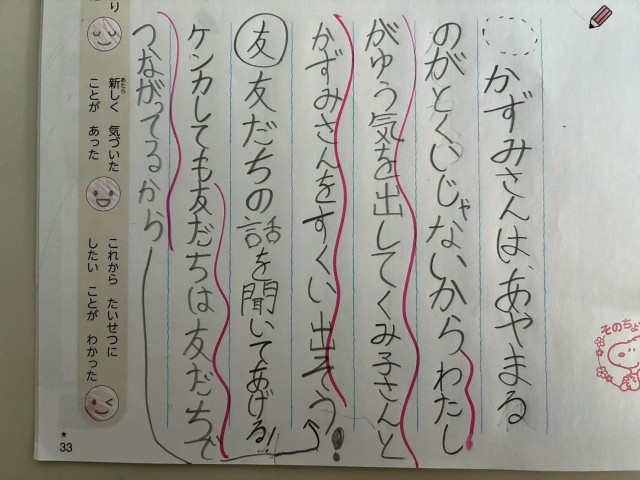 かずみさんは、あやまる
のがとくいじゃないから わたし
がゆう気を出してくみ子さんと
かずみさんをすくい出そう!
友 友だちの話を聞いてあげる!
ケンカしても友だちは友だちで
つながってるから
り
新しく 気づいた
あたら
ことが あった
これから たいせつに
したい ことが わかった
★
33
そのちょ